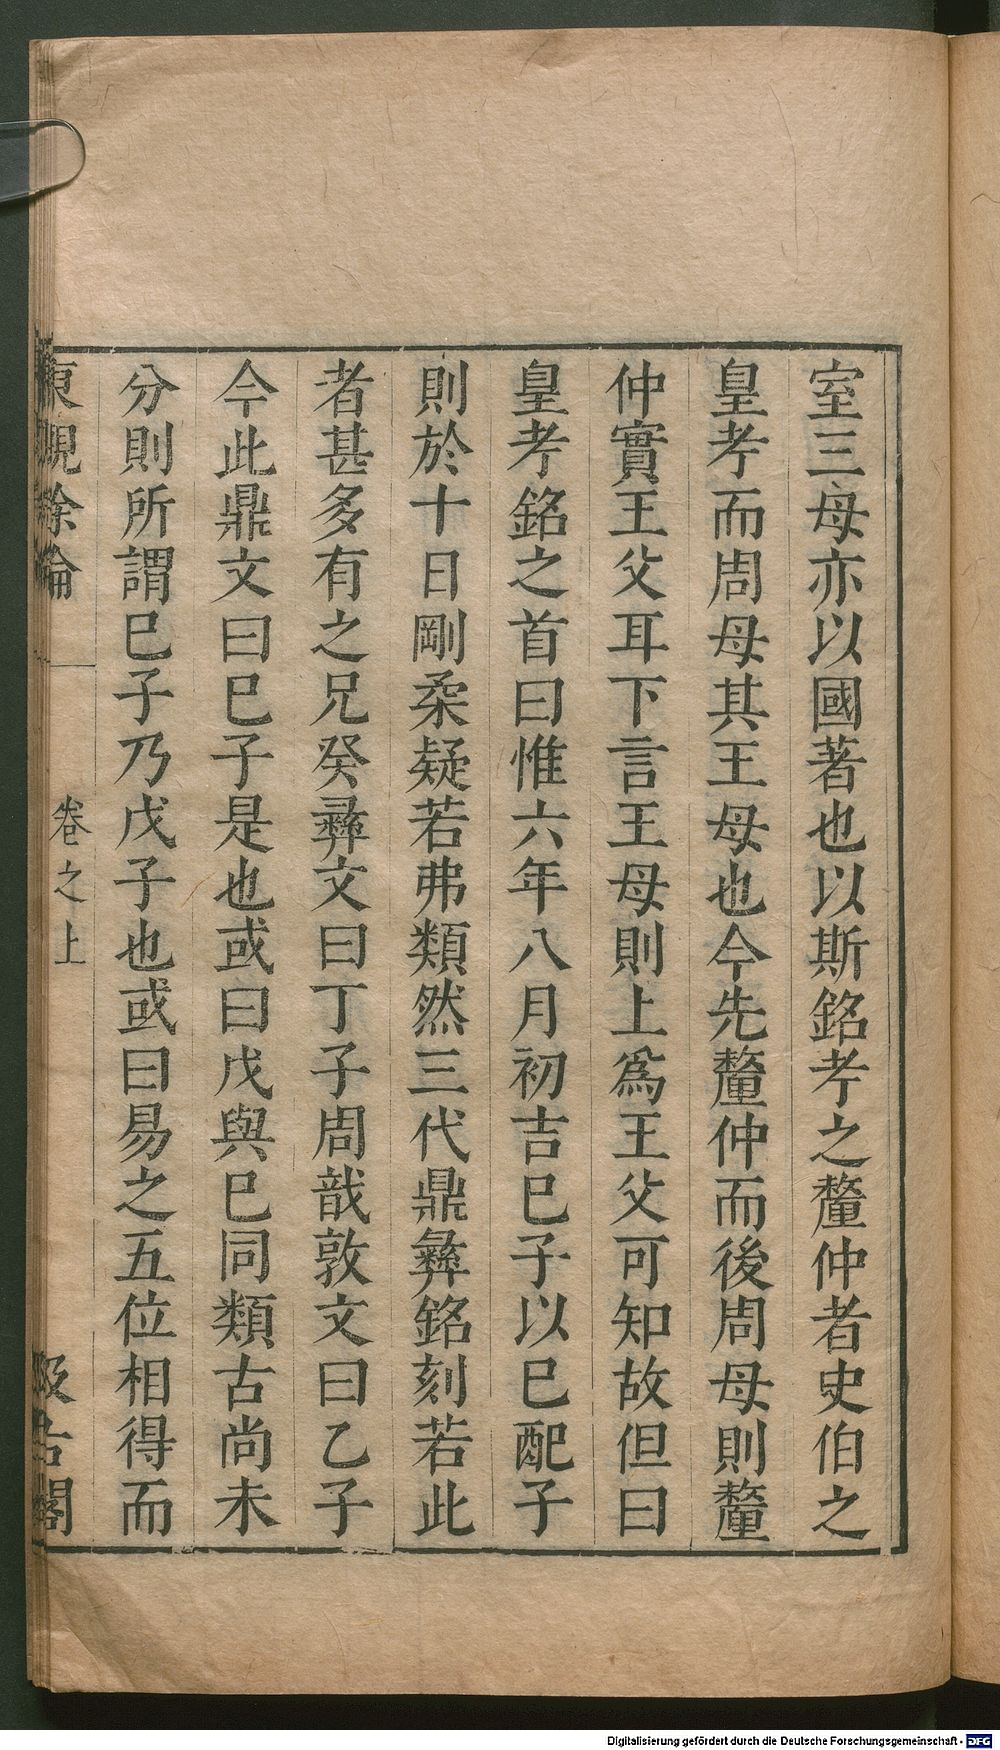 室三母亦以國著也以斯銘考之釐仲者史伯之
皇考而周母其王母也今先釐仲而後周母則釐
仲實王父耳下言王母則上爲王父可知故但曰
皇考銘之首曰惟六年八月初吉巳子以巳配子
則於十日剛柔疑若弗類然三代鼎彝銘刻若此
者甚多有之兄癸彝文曰丁子周敔敦文曰乙子
今此鼎文曰巳子是也或曰戊與巳同類古尚未
分則所謂巳子乃戊子也或曰易之五位相得而
東觀餘論
卷之上
汲古閣
Digitalisierung gefördert durch die Deutsche Forschungsgemeinschaft - DFG